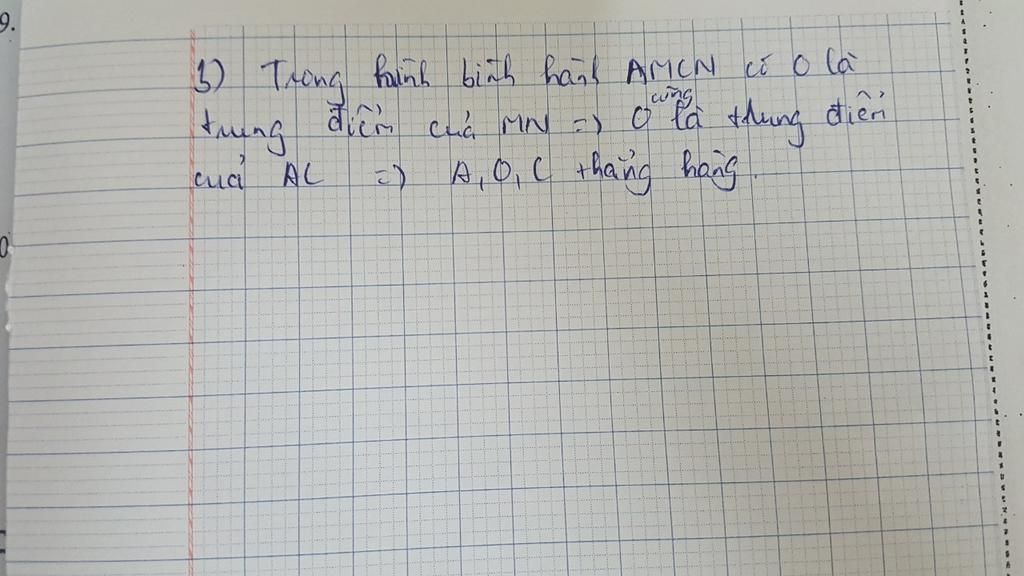 9.
3) Trong hình bình hành AMCN có O là
cũng
trung điểm của MN => O là trung điểm
của AC => A, O, C thẳng hàng.